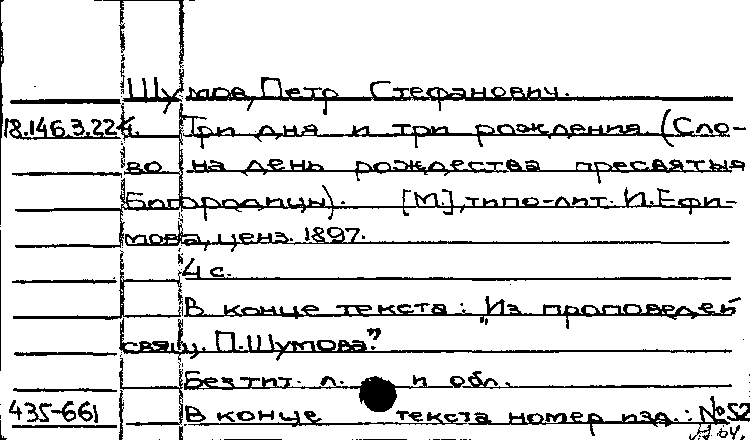 Шумов, Петр Стефанович.
18.146.3.224. Три дня и три рождения. (Сло-
во на день рождества пресвятыя
Богородицы). [М.], типо-лит. И. Ефи-
мова, ценз. 1897.
4 с.
В конце текста: "Из проповедей
свящ. П. Шумова."
Без тит. л. и обл.
435-661 В конце текста номер изд.: № 52